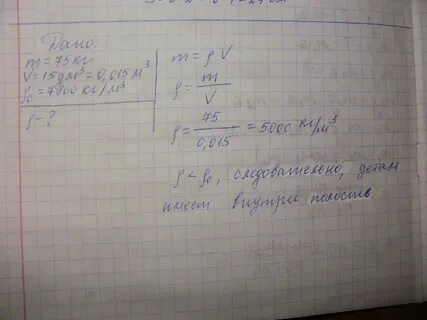 Дано:
m = 75 кг
V = 15 дм³ = 0,015 м³
ρc = 7800 кг/м³
ρ - ?
m = ρ V
ρ = m / V
ρ = 75 / 0,015 = 5000 кг/м³
ρ < ρc, следовательно, деталь
имеет внутри полость.